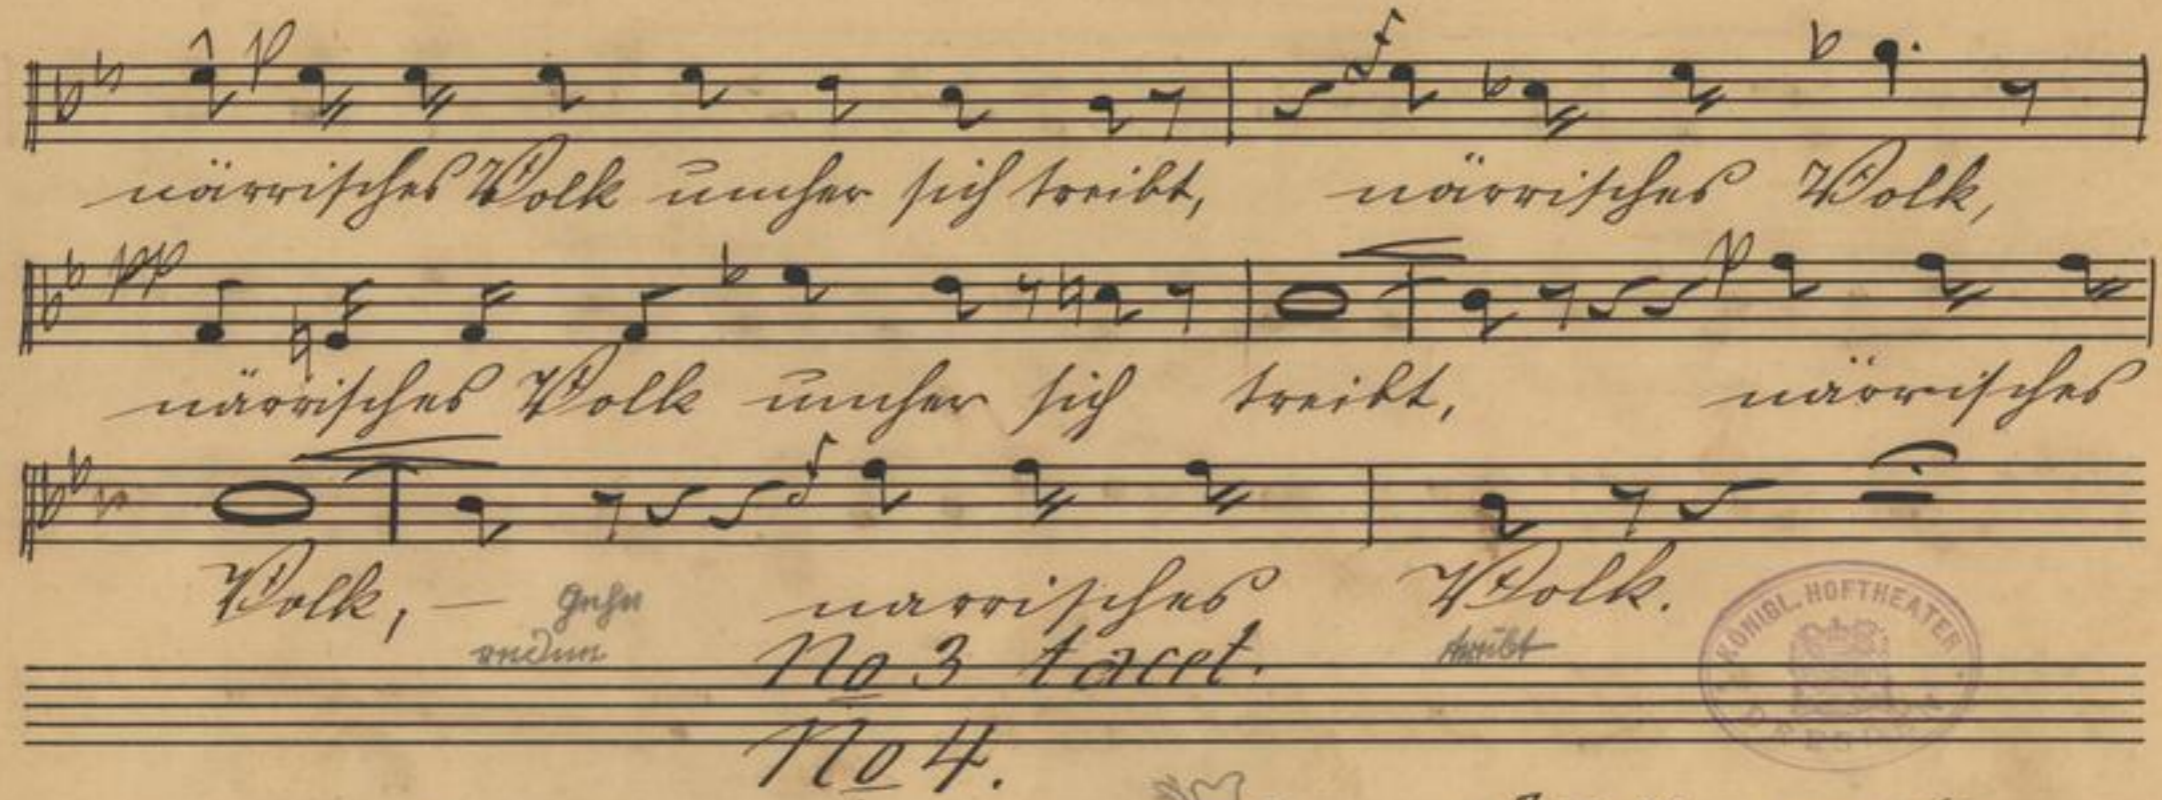 närrisches Volk umher sich treibt, närrisches Volk,
pp p
närrisches Volk umher sich treibt, närrisches
Volk, — närrisches Volk.
No 3 tacet.
KÖNIGL. HOFTHEATER DRESDEN
No 4.